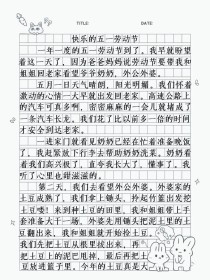 TITLE
DATE
快乐的五一劳动节
一年一度的五一劳动节到了，我早就盼望
着这一天了，因为爸爸妈妈说劳动节要带我和
姐姐回老家看望爷爷奶奶、外公外婆。
五月一日天气晴朗，阳光明媚，我们怀着
激动的心情一大早就出发回老家。高速公路上
的汽车可真多啊，密密麻麻的一会儿就堵成了
一条汽车长龙。我们花了比以前多一倍的时间
才安全到达老家。
一进家门就看见奶奶已经在忙着准备晚饭
了，我赶紧放下行李去帮助奶奶洗菜。奶奶看
着我们高兴极了，直夸我长大了，懂事了。我
听了心里也甜滋滋的。
第二天，我们去看望外公外婆，外婆家的
土豆成熟了，我们拿上锄头，拎起竹篮出发挖
土豆喽！来到种土豆的田里，我和姐姐带上手
套准备大干一场。外婆先用锄头把泥土里的土
豆翻出来，我和姐姐就开始捡土豆。
我们先把土豆从根里拔出来，再
把土豆上的泥巴甩掉，最后再把土
豆放进篮子里。今年的土豆真是大